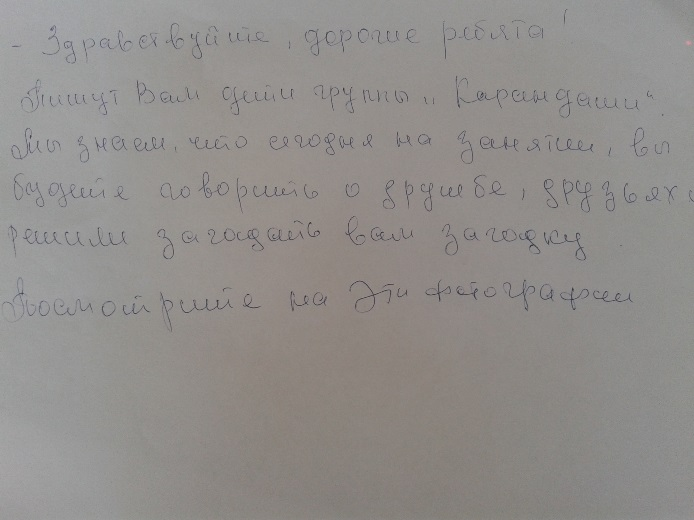 - Здравствуйте, дорогие ребята!
Пишут Вам дети группы „Карандаши“.
Мы знаем, что сегодня на занятии, вы
будете говорить о дружбе, друзьях и
решили загадать вам загадку.
Посмотрите на эти фотографии